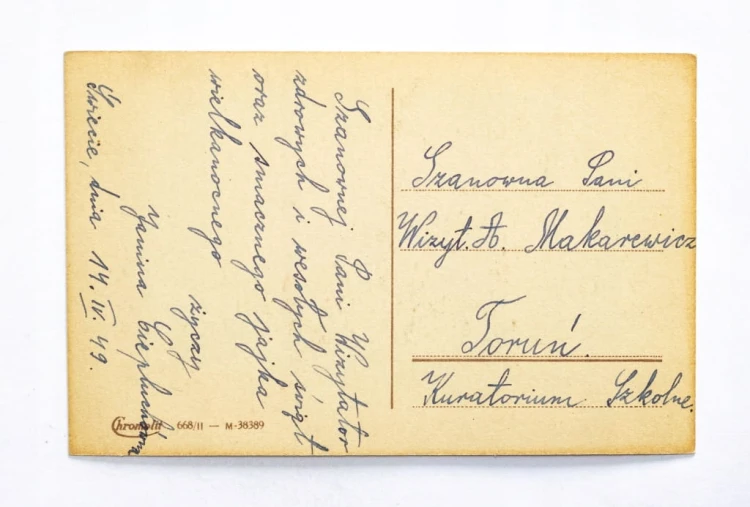 Szanownej Pani Wizytator
zdrowych i wesołych świąt
oraz smacznego jajka
wielkanocnego
życzy
Janina
Świecie, dnia 14. IV. 49.
Szanowna Pani
Wizyt. A. Makarewicz
Toruń.
Kuratorium Szkolne.
Chromolit 668/II — M-38389